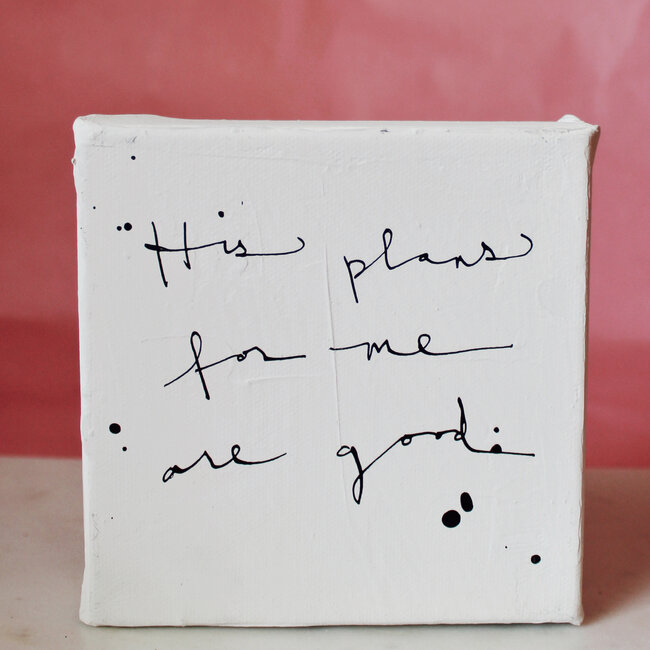 His plans
for me
are good.